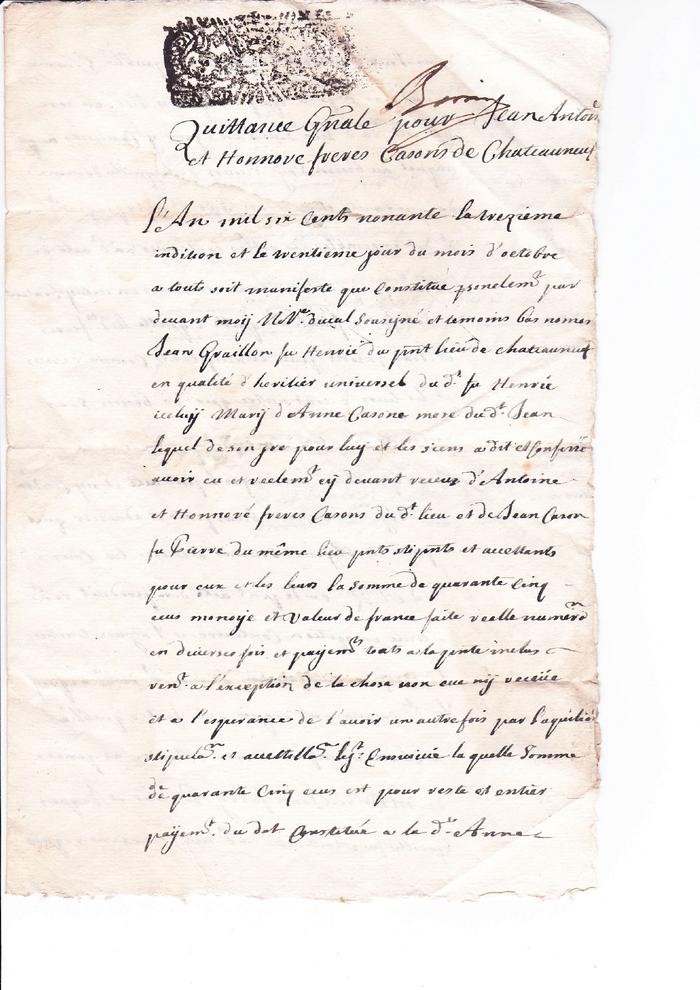 Quittance Gnale pour Jean Antoi
et Honnore freres Casons de Chateauneuf
l'An mil six Cents nonante la trezieme
indition et le trentieme jour du mois d'octobre
a touts soit manifeste que Constitué psonelemt par
devant moij Nore ducal Sousigné et temoins bas nomes
Jean Graillon fu Henrié du pnt lieu de chateauneuf
en qualité d'heritier universel du dt fu Henrie
iceluij Marij d'Anne Casone mere du dt Jean
lequel de son gre pour luij et les siens a dit et Conferré
avoir eu et reelemt cij devant receux d'Antoine
et Honnoré freres Casons du dt lieu et de Jean Cason
fu Pierre du même lieu pnts stipnts et accettants
pour eux et les leurs la Somme de quarante Cinq
ecus monoije et valeur de france faite reelle numerõ
en diverses fois et paijemts touts a la pnte inclus
rent a l'exception de la chose non eue nij receüe
et a l'esperance de l'avoir un autre fois par
stipulaon et accettillaon Ensuivie la quelle Somme
de quarante Cinq ecus est pour reste et entier
paijemt du dot Constitué a la dte Anne